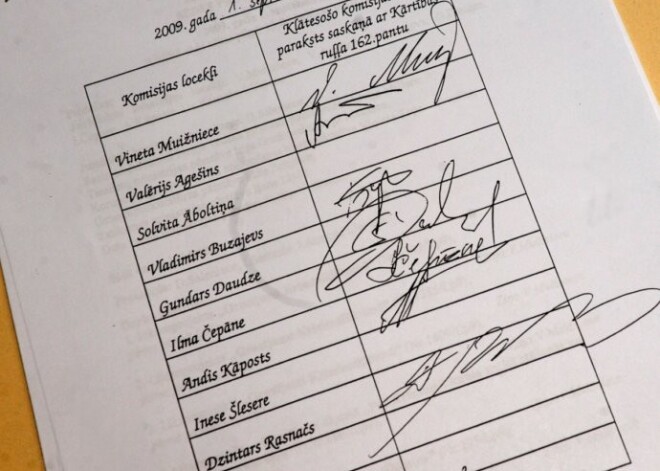 2009. gada 1. sep
Komisijas locekļi
Klātesošo komisijas
paraksts saskaņā ar Kārtības
ruļļa 162.pantu
Vineta Muižniece
Valērijs Agešins
Solvita Āboltiņa
Vladimirs Buzajevs
Gundars Daudze
Ilma Čepāne
Čepāne
Andis Kāposts
Inese Šlesere
Dzintars Rasnačs